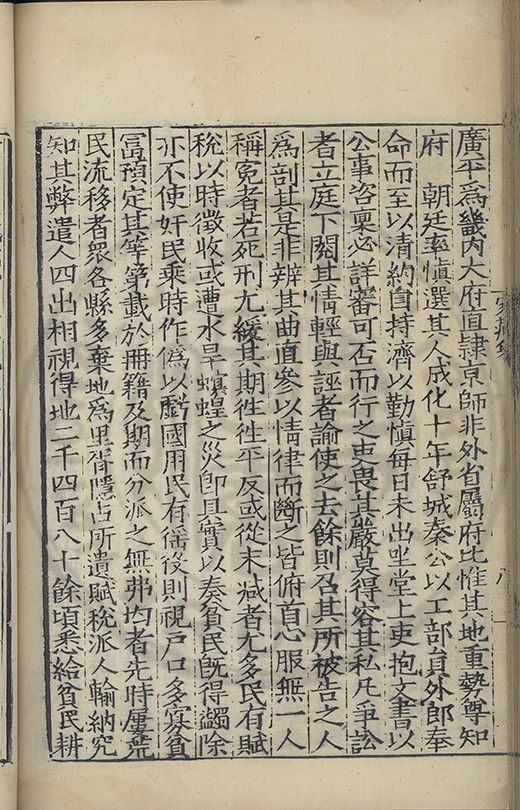 廣平爲畿内大府直隷京師非外省屬府比惟其地重勢尊知
府　朝廷率愼選其人成化十年舒城秦公以工部員外郎奉
命而至以清約自持濟以勤愼每日未出坐堂上吏抱文書以
公事咨稟必詳審可否而行之吏畏其嚴莫得容其私凡爭訟
者立庭下閱其情輕與誣者諭使之去餘則召其所被告之人
爲剖其是非辨其曲直參以情律而斷之皆俯首心服無一人
稱冤者若死刑尤緩其期徃徃平反或從末减者尤多民有賦
稅以時徵收或遭水旱蝗之災卽具實以奏貧民旣得蠲除
亦不使奸民乘時作僞以虧國用民有徭役則視戶口多寡貧
冨預定其等第載於冊籍及期而分派之無弗均者先時屢荒
民流移者衆各縣多棄地爲里胥隱占所遺賦稅派人輸納究
知其弊遣人四出相視得地二千四百八十餘頃悉給貧民耕